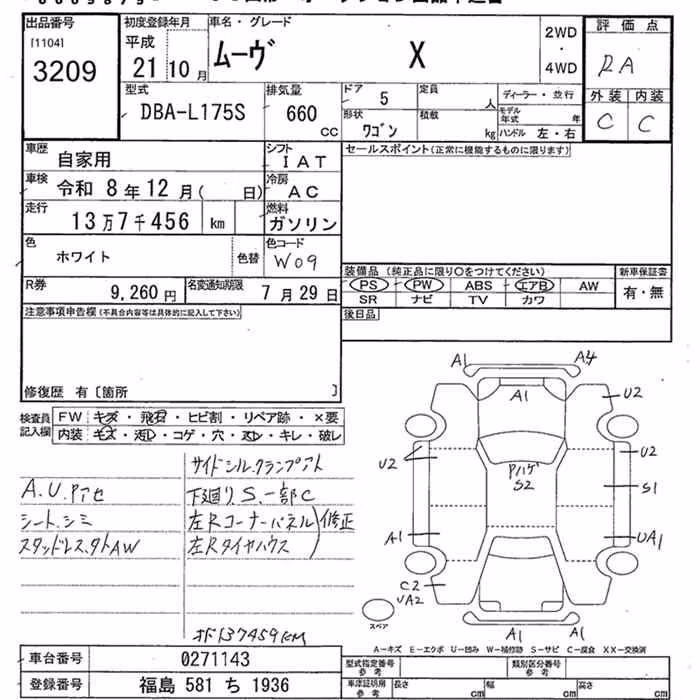 出品番号
[1104]
3209
初度登録年月
平成
21 10月
車名・グレード
ムーヴ X
2WD
・
4WD
評価点
RA
外装 内装
C C
型式
DBA-L175S
排気量
660
CC
ドア 5
定員 人
ディーラー・並行
形状 ワゴン
積載 kg
モデル年式 年
ハンドル 左・右
車歴 自家用
シフト IAT
セールスポイント(正常に機能するものに限ります)
車検 令和 8年12月( 日)
冷房 AC
走行 13万7千456 km
燃料 ガソリン
色 ホワイト 色替
色コード W09
装備品(純正品に限り〇をつけてください)
新車保証書
PS PW ABS エアB AW
有・無
SR ナビ TV カワ
後日品
R券 9,260円
名変通知期限 7月29日
注意事項申告欄(不具合内容等は具体的に記入して下さい)
修復歴 有〔箇所 〕
検査員記入欄
FW キズ・飛石・ヒビ割・リペア跡・×要
内装 キズ・汚レ・コゲ・穴・スレ・キレ・破レ
サイドシル.クランプアト
A.U.アセ
下廻り.S.一部C
シート.シミ
左Rコーナーパネル
修正
スタッドレス.タトAW
左Rタイヤハウス
137459KM
A1 A4
A1
U2
U2
U2
Pハゲ
S2
S1
A1
UA1
C2
UA2
スペア
A1 A1
A-キズ E-エクボ U-凹み W-補修跡 S-サビ C-腐食 XX-交換済
車台番号 0271143
登録番号 福島 581 ち 1936
型式指定番号
参考
類別区分番号
参考
車庫証明用
参考
長さ cm
幅 cm
高さ cm